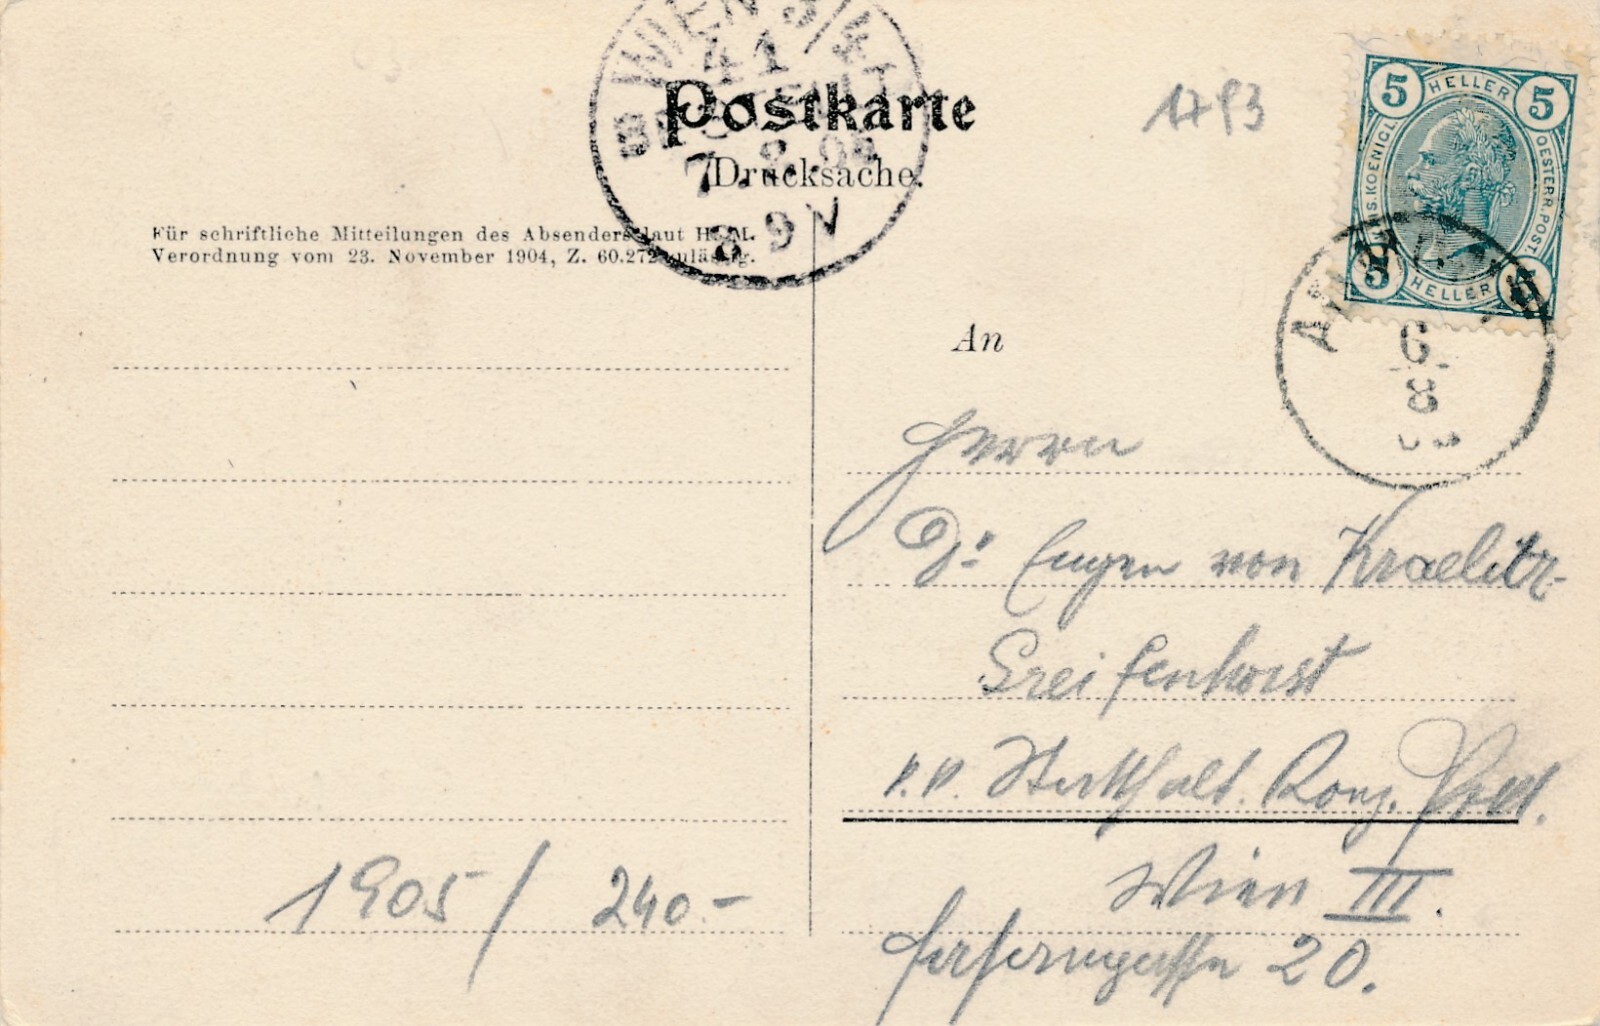 WIEN 3/4
41
7. 8. 05
8 9 V
Postkarte
Drucksache.
1793
5 HELLER 5
OESTERR. POST
5 HELLER 5
Für schriftliche Mitteilungen des Absenders laut H. M.
Verordnung vom 23. November 1904, Z. 60.272 zulässig.
6
8
An
Herrn
Dr. Eugen von Kraelitz-
Greifenhorst
k.k. Statthalt. Konz. Prakt.
Wien III.
20.
1905/ 240.-